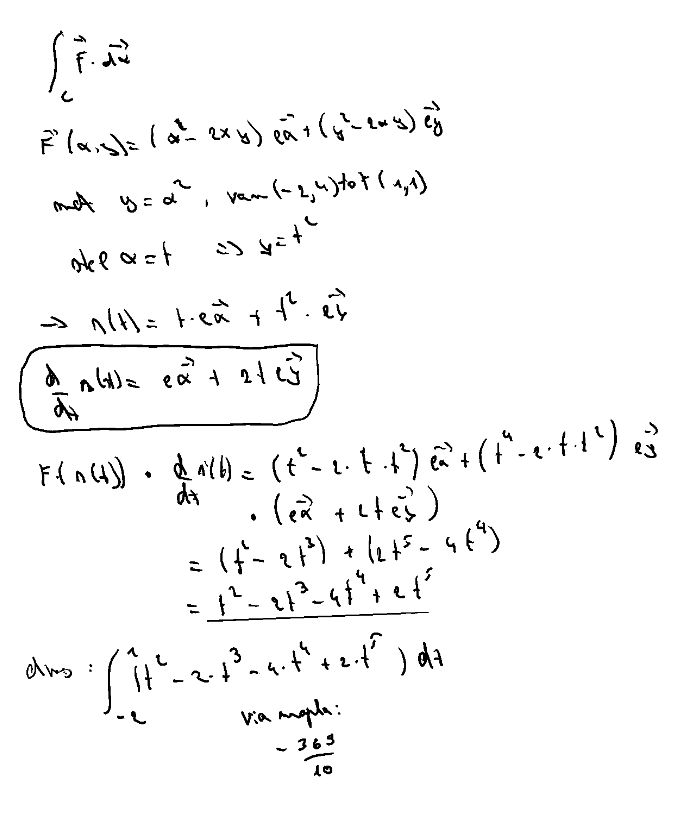 ∫_C F⃗ · dα⃗
F⃗(x,y) = (x² - 2xy) e⃗x + (y² - 2xy) e⃗y
met y = x², van (-2,4) tot (1,1)
stel x = t => y = t²
→ r(t) = t·e⃗x + t²·e⃗y
d/dt r(t) = e⃗x + 2t e⃗y
F(r(t)) · d/dt r(t) = (t² - 2·t·t²) e⃗x + (t⁴ - 2·t·t²) e⃗y
· (e⃗x + 2t e⃗y)
= (t² - 2t³) + (2t⁵ - 4t⁴)
= t² - 2t³ - 4t⁴ + 2t⁵
dus : ∫₋₂¹ (t² - 2·t³ - 4·t⁴ + 2·t⁵) dt
via maple:
- 369/10